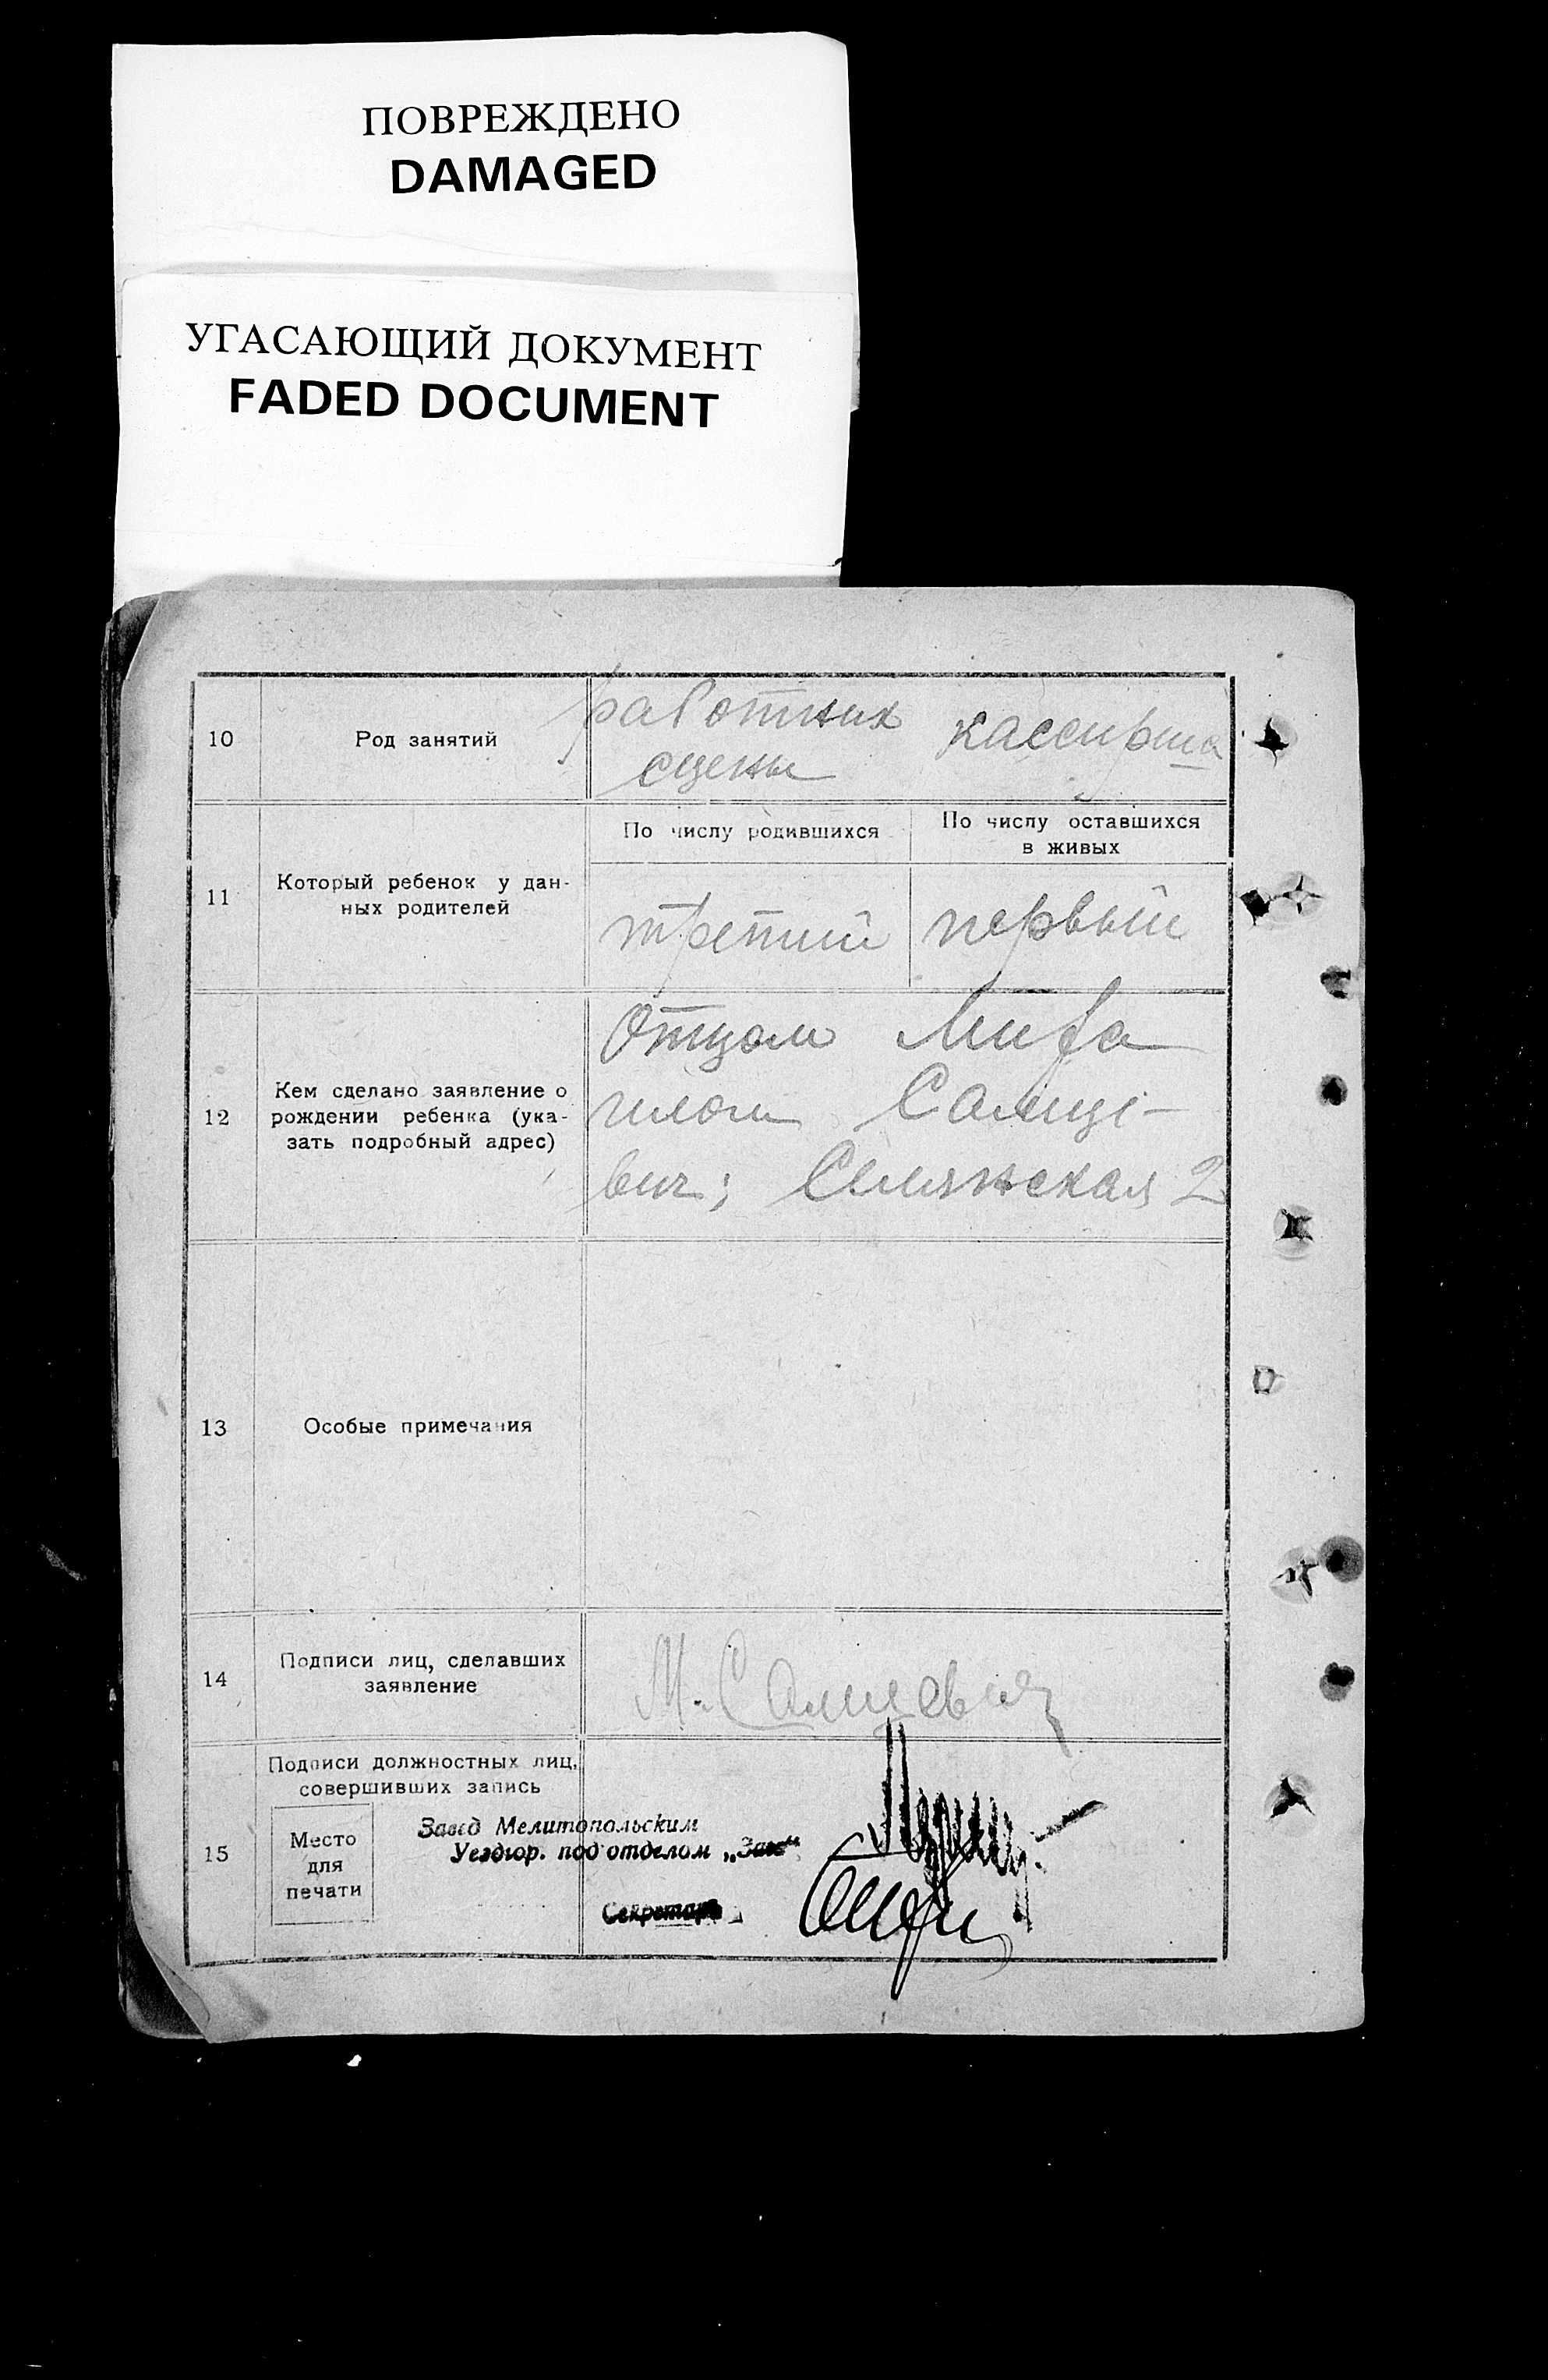 ПОВРЕЖДЕНО
DAMAGED
УГАСАЮЩИЙ ДОКУМЕНТ
FADED DOCUMENT
10
Род занятий
работник
сцены
кассирша
11
Который ребенок у дан-
ных родителей
По числу родившихся
По числу оставшихся
в живых
третий
первый
12
Кем сделано заявление о
рождении ребенка (ука-
зать подробный адрес)
Отцом Миха
илом
вич;
2
13
Особые примечания
14
Подписи лиц, сделавших
заявление
М.
15
Подписи должностных лиц,
совершивших запись
Место
для
печати
Завед Мелитопольским
Уездюр. под отделом „Загс"
Секретарь